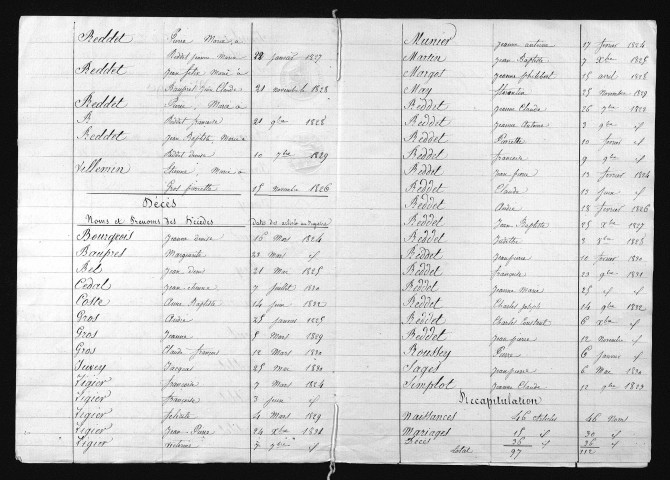 Reddet Pierre Marié à
Reddet Jeanne Marie 22 janvier 1827
Reddet Jean felix Marié à
Baupret Jean Claude 21 novembre 1828
Reddet Pierre Marié à
R Reddet francoise 21 9bre 1828
Reddet Jean Baptiste Marié à
Reddet denise 10 7bre 1829
Villemin Etienne Marié à
Gros pierrette 18 novembre 1826
Décès
Noms et Prénoms des Décédés Dates des actes au Registre
Bourgeois Jeanne denise 16 Mars 1824
Baupres Marguerite 23 Mai
Bel Jean 21 Mai 1825
Cedal Jean 7 juillet 1830
Coste Anne Baptiste 14 juin 1822
Gros André 25 janvier 1825
Gros Jeanne 5 Mars 1829
Gros Claude françois 12 Mars 1830
Jacques 25 mai 1830
Ligier francoise 7 Mars 1824
Ligier francoise 3 juin
Ligier 4 Mars 1829
Ligier Jean Pierre 24 Xbre
Ligier 7 9bre
Munier Jeanne antoine 17 fevrier 1824
Martin Jean Baptiste 7 Xbre 1825
Margos Jeanne philibert 15 avril 1828
May Sébastien 25 novembre 1829
Reddet Jeanne Claude 26 9bre
Reddet Jeanne Antoine 3 9bre
Reddet Pierrette 10 fevrier
Reddet francoise 9 9bre
Reddet Jean pierre 13 fevrier 1824
Reddet Claude 13 juin
Reddet André 18 fevrier 1826
Reddet Jean Baptiste 25 Xbre 1827
Reddet Judithe 3 Xbre 1828
Reddet Jean pierre 10 fevrier 1830
Reddet francoise 23 9bre 1831
Reddet Jeanne Marie 25
Reddet Charles joseph 14 9bre 1832
Reddet Charles Constant 6 Xbre
Reddet Jean pierre 12 novembre
Roussey Pierre 6 janvier
Sages Jean pierre 6 Mai 1830
Simplot Jeanne Claude 12 9bre 1823
Récapitulation
Naissances 46 Articles 46 Noms
Mariages 15 30
Décès 36 36
Total 97 112